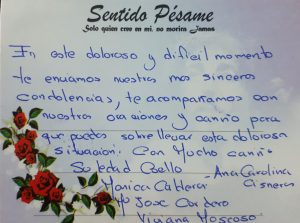 Sentido Pésame
Solo quien cree en mi, no morira Jamas
En este doloroso y dificil momento
te enviamos nuestras mas sinceras
condolencias, te acompañamos con
nuestras oraciones y cariño para
que puedas sobrellevar esta dolorosa
situación. Con Mucho cariño
Soledad Coello
Ana Carolina
Cisneros
Monica Calderon
Ma Jose Cordero
Viviana Moscoso